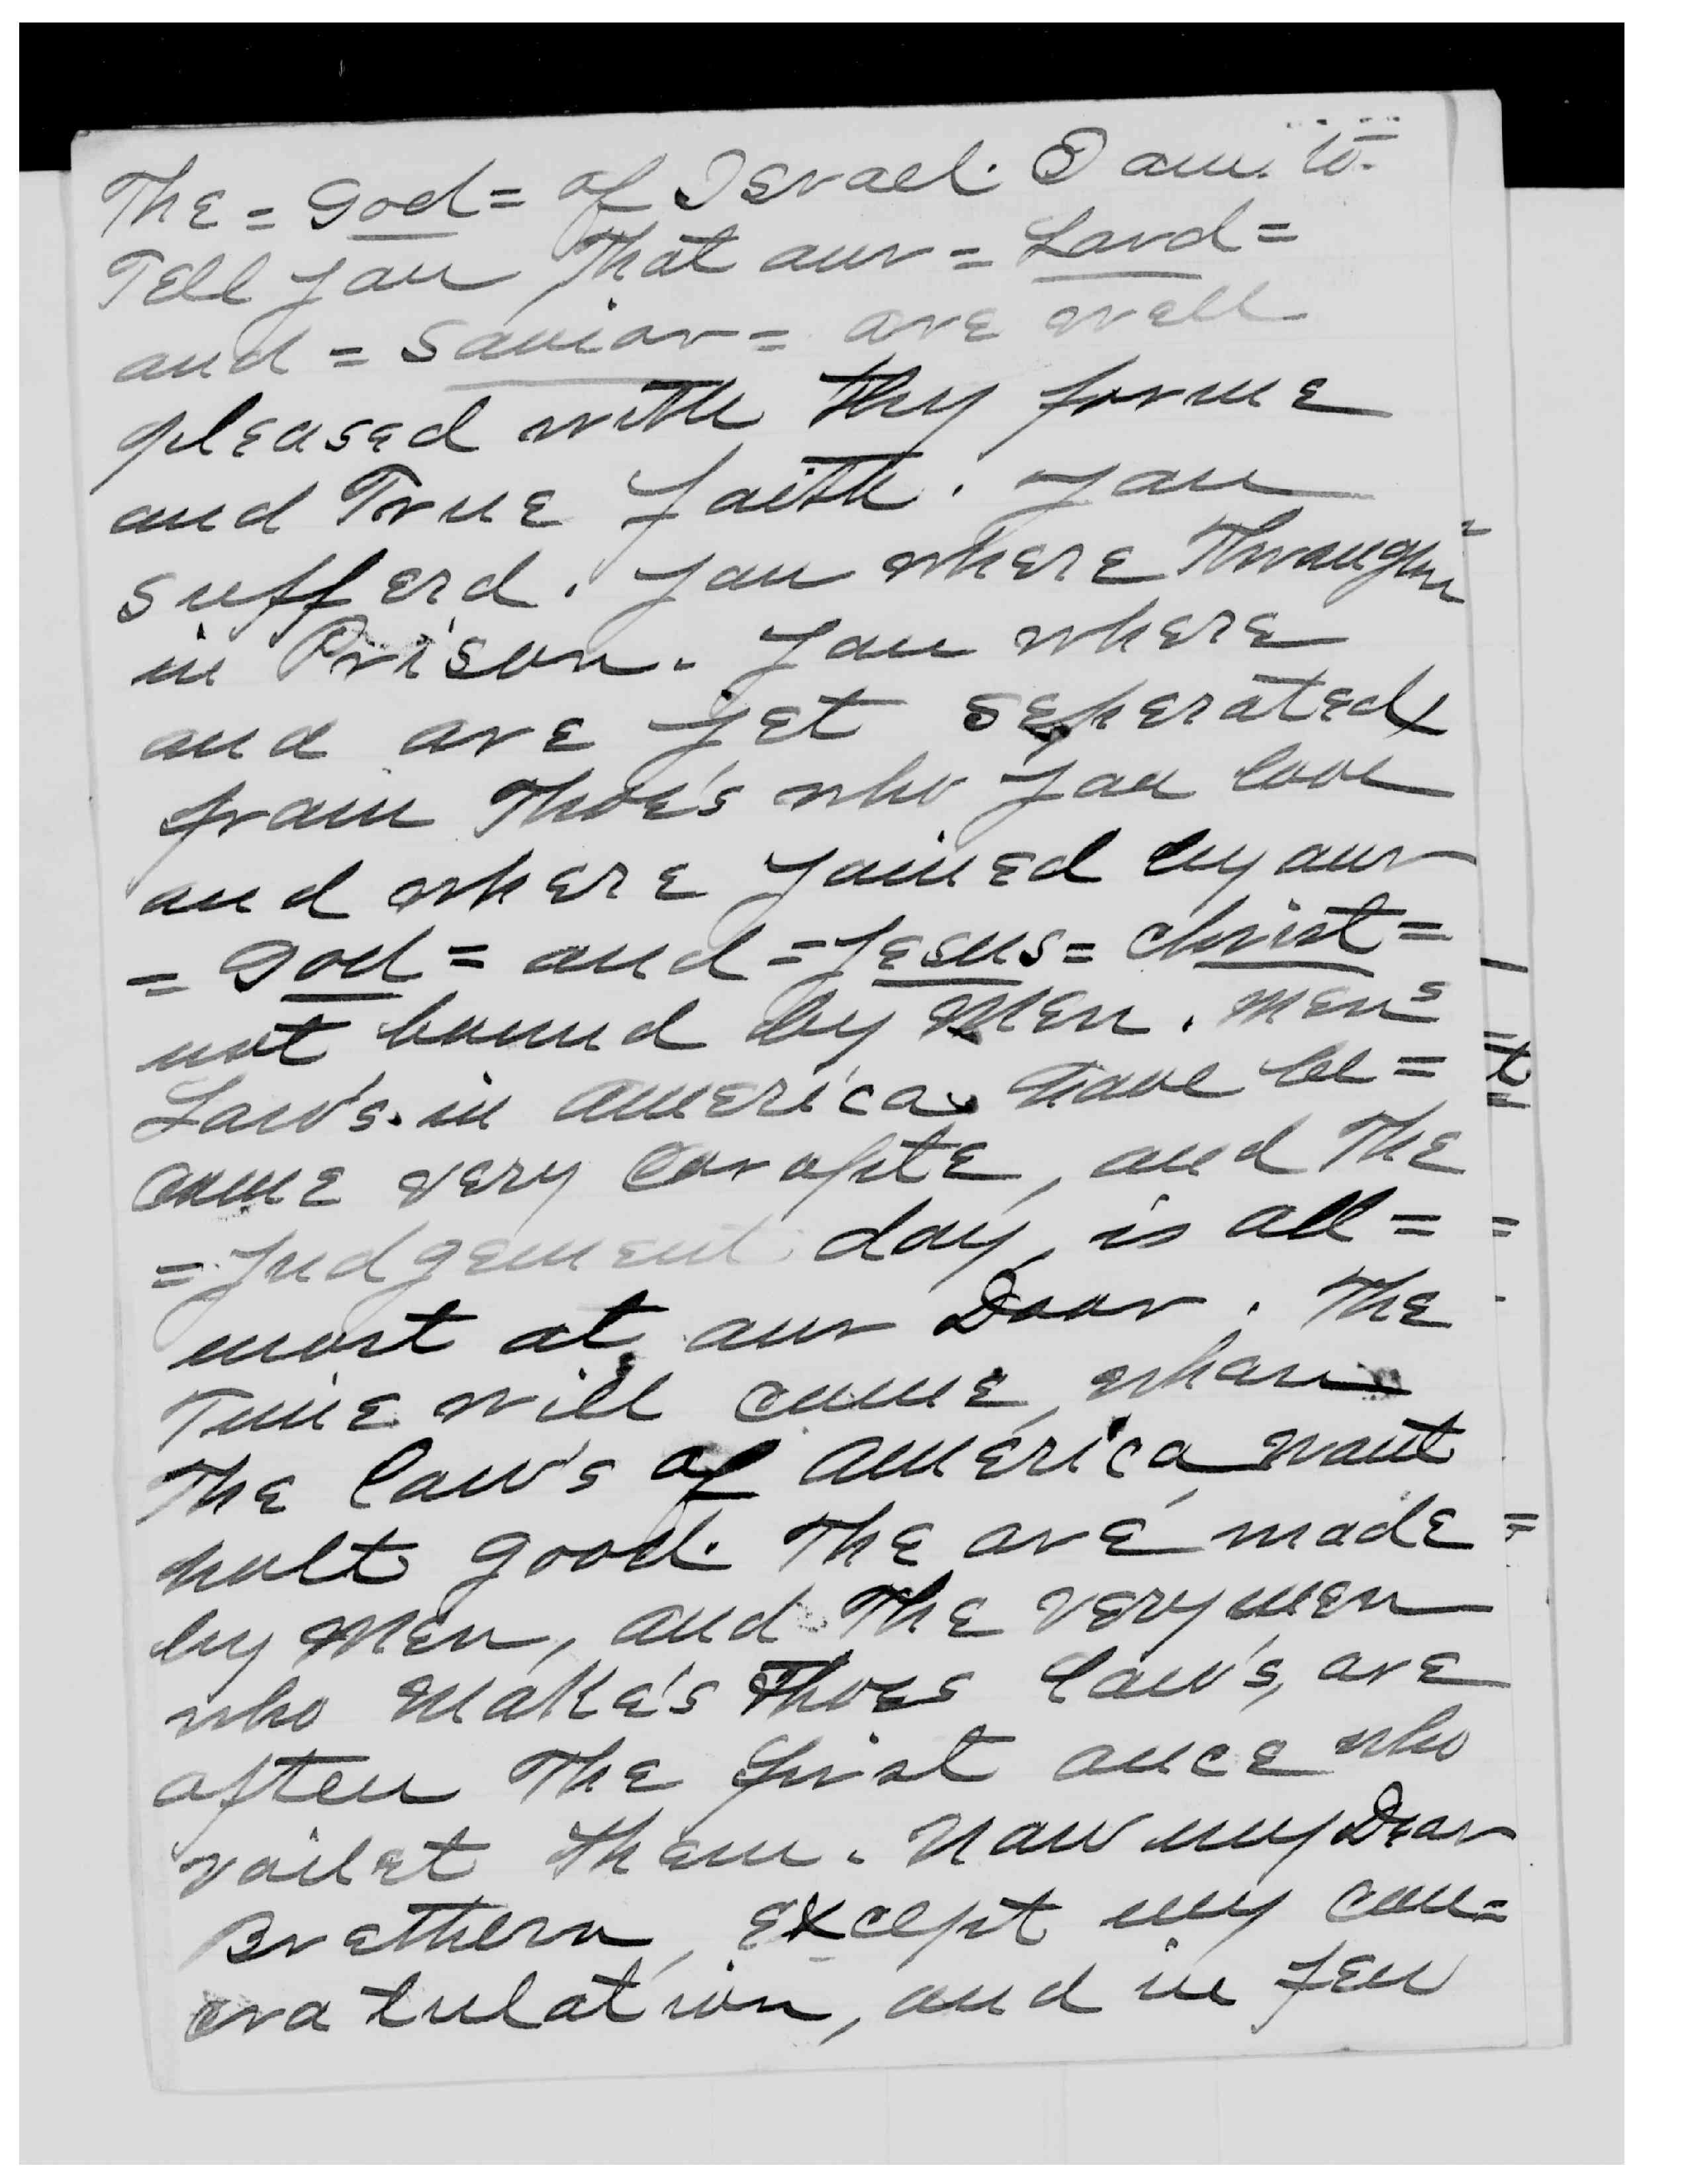 The = God = of Iserael. I am. to.
Tell you that our = Lord =
and = Savior = are well
pleased with thy forme
and True faith. you
sufferd. you where Throughn
in Prison. you where
and are yet seperated,
from Thoe's who you love
and where joined by our
= God = and = Jesus = Christ =
not bound by Men. Mens
Law's. in America. have be =
come very Coropte, and The
= Judgement day, is all =
most at our Door. The
Time will come, whan
The law's of America, wont
holt good. The are made
by Men, and The very men
who Make's Thoes law's, are
often The first once who
voilet them. Now my Dear
Brethern, except my con=
cratulation, and in few